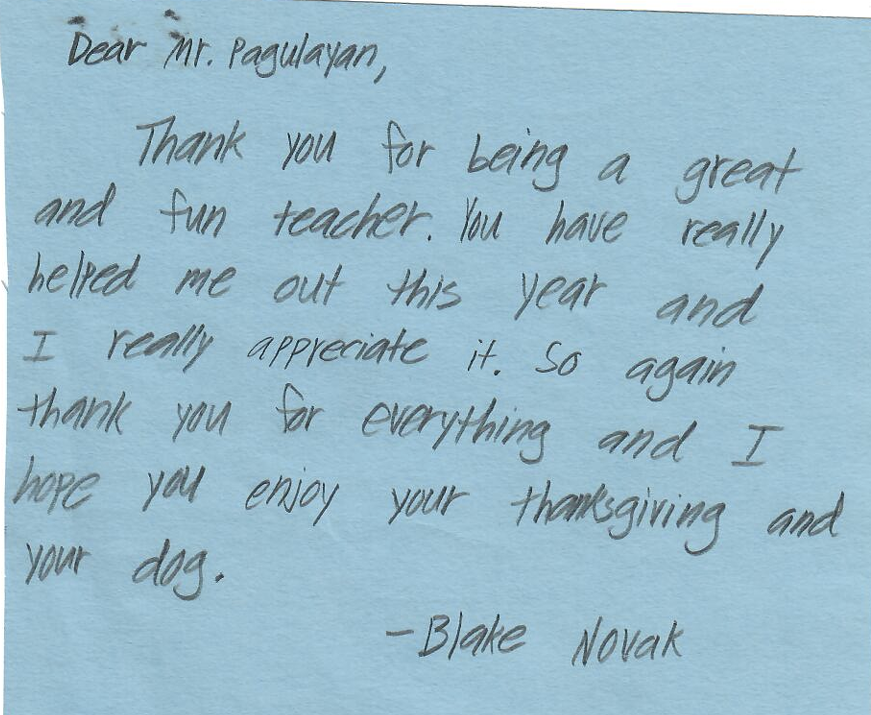 Dear Mr. Pagulayan,
Thank you for being a great
and fun teacher. You have really
helped me out this year and
I really appreciate it. So again
thank you for everything and I
hope you enjoy your thanksgiving and
your dog.
-Blake Novak